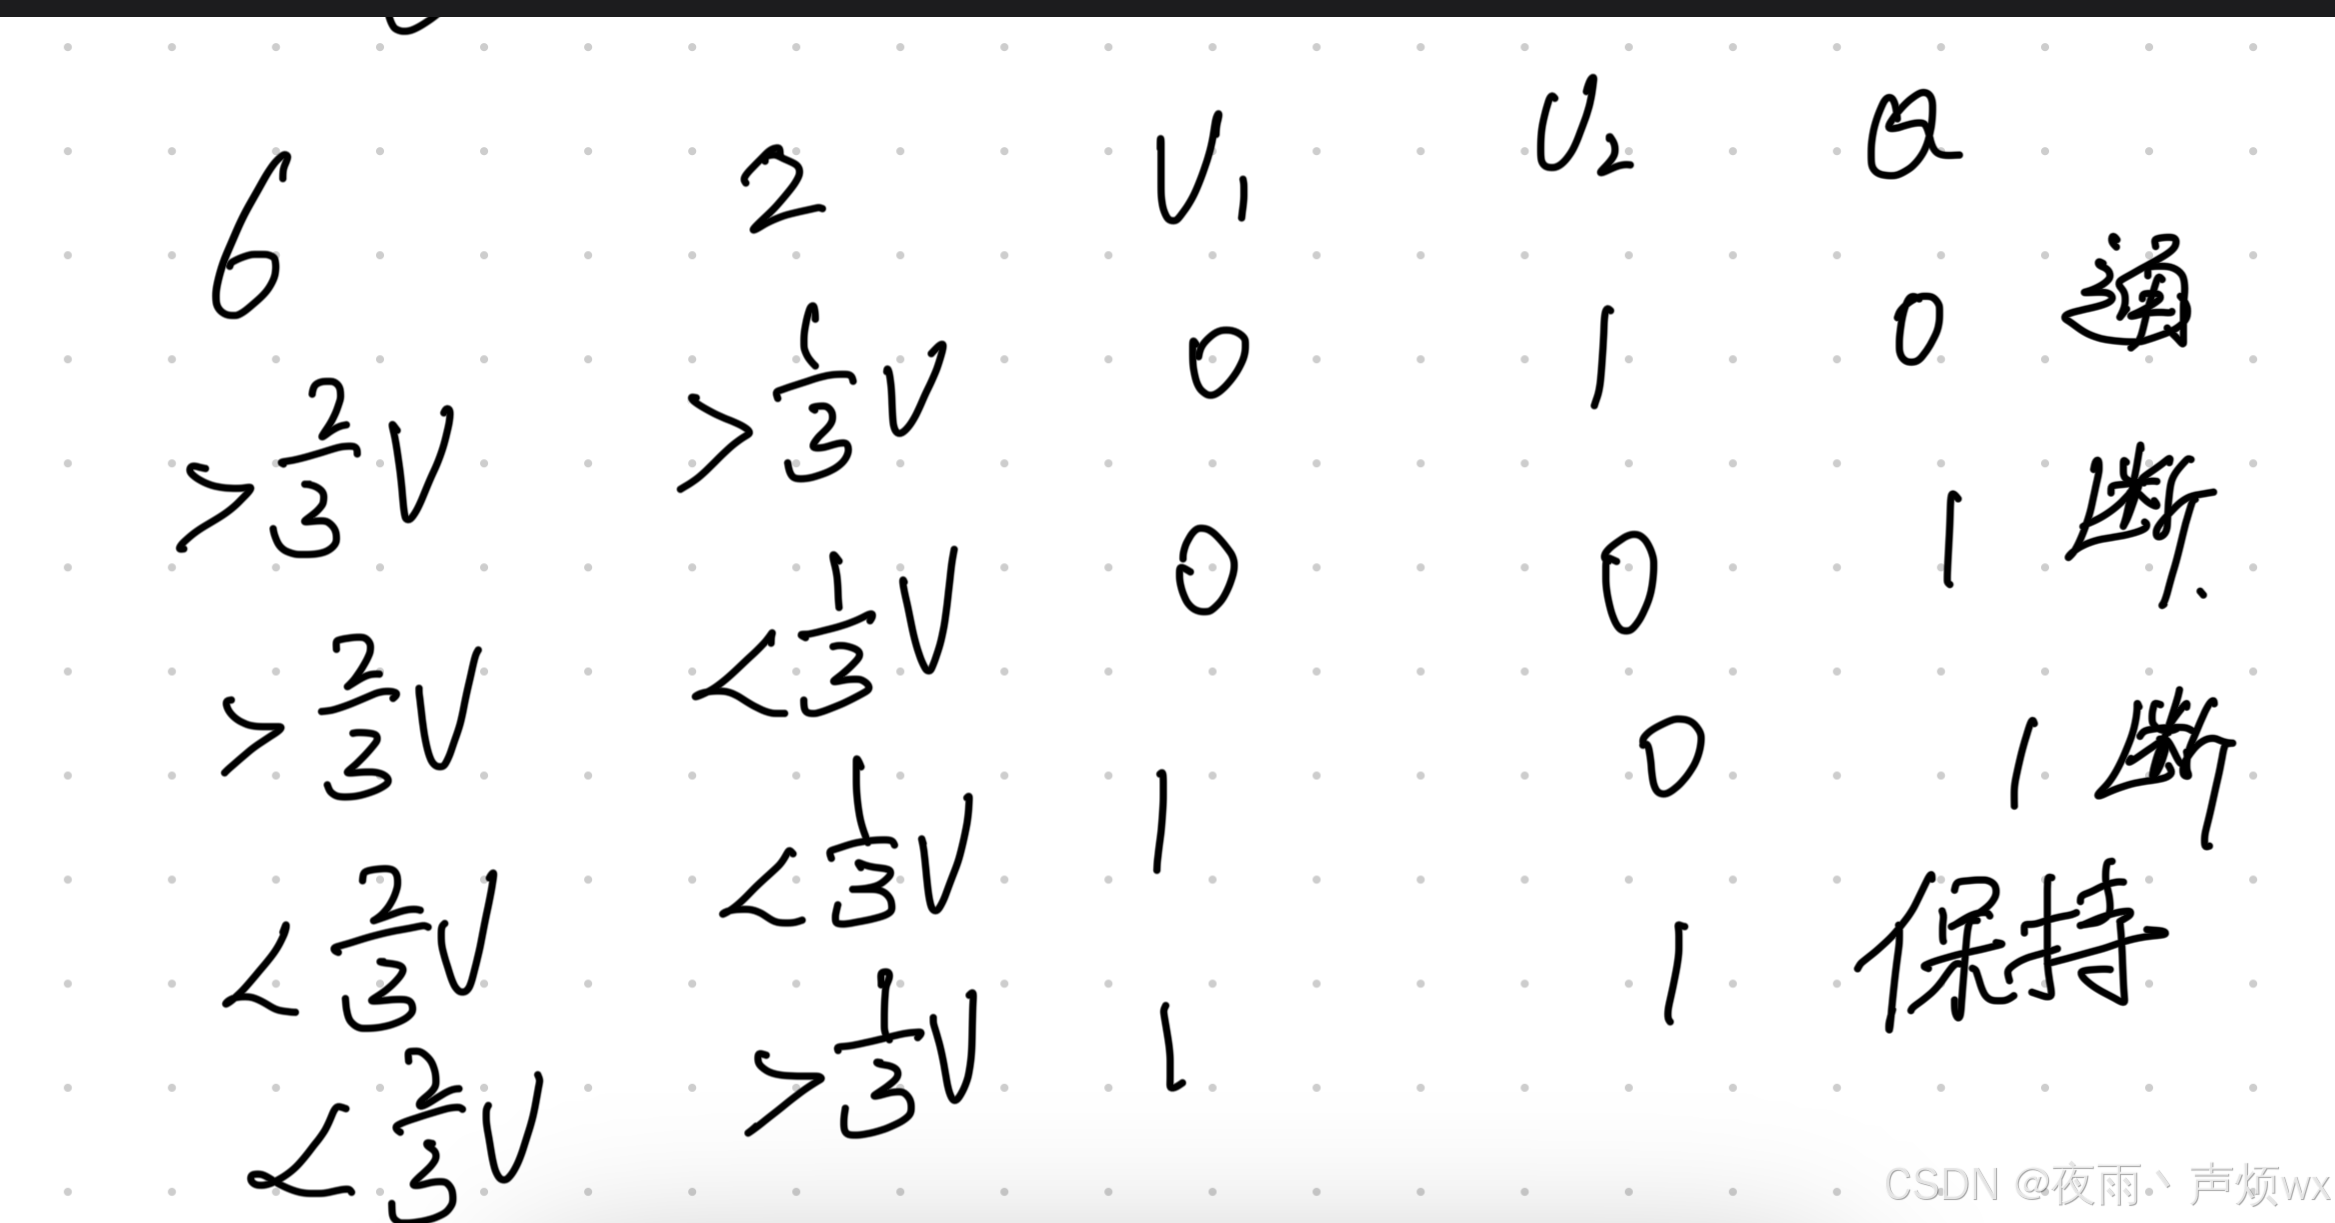 6 2 U₁ U₂ Q
>2/3V >1/3V 0 1 0 通
>2/3V <1/3V 0 0 1 断.
<2/3V <1/3V 1 0 1 断
<2/3V >1/3V 1 1 保持
CSDN @夜雨丶声烦wx